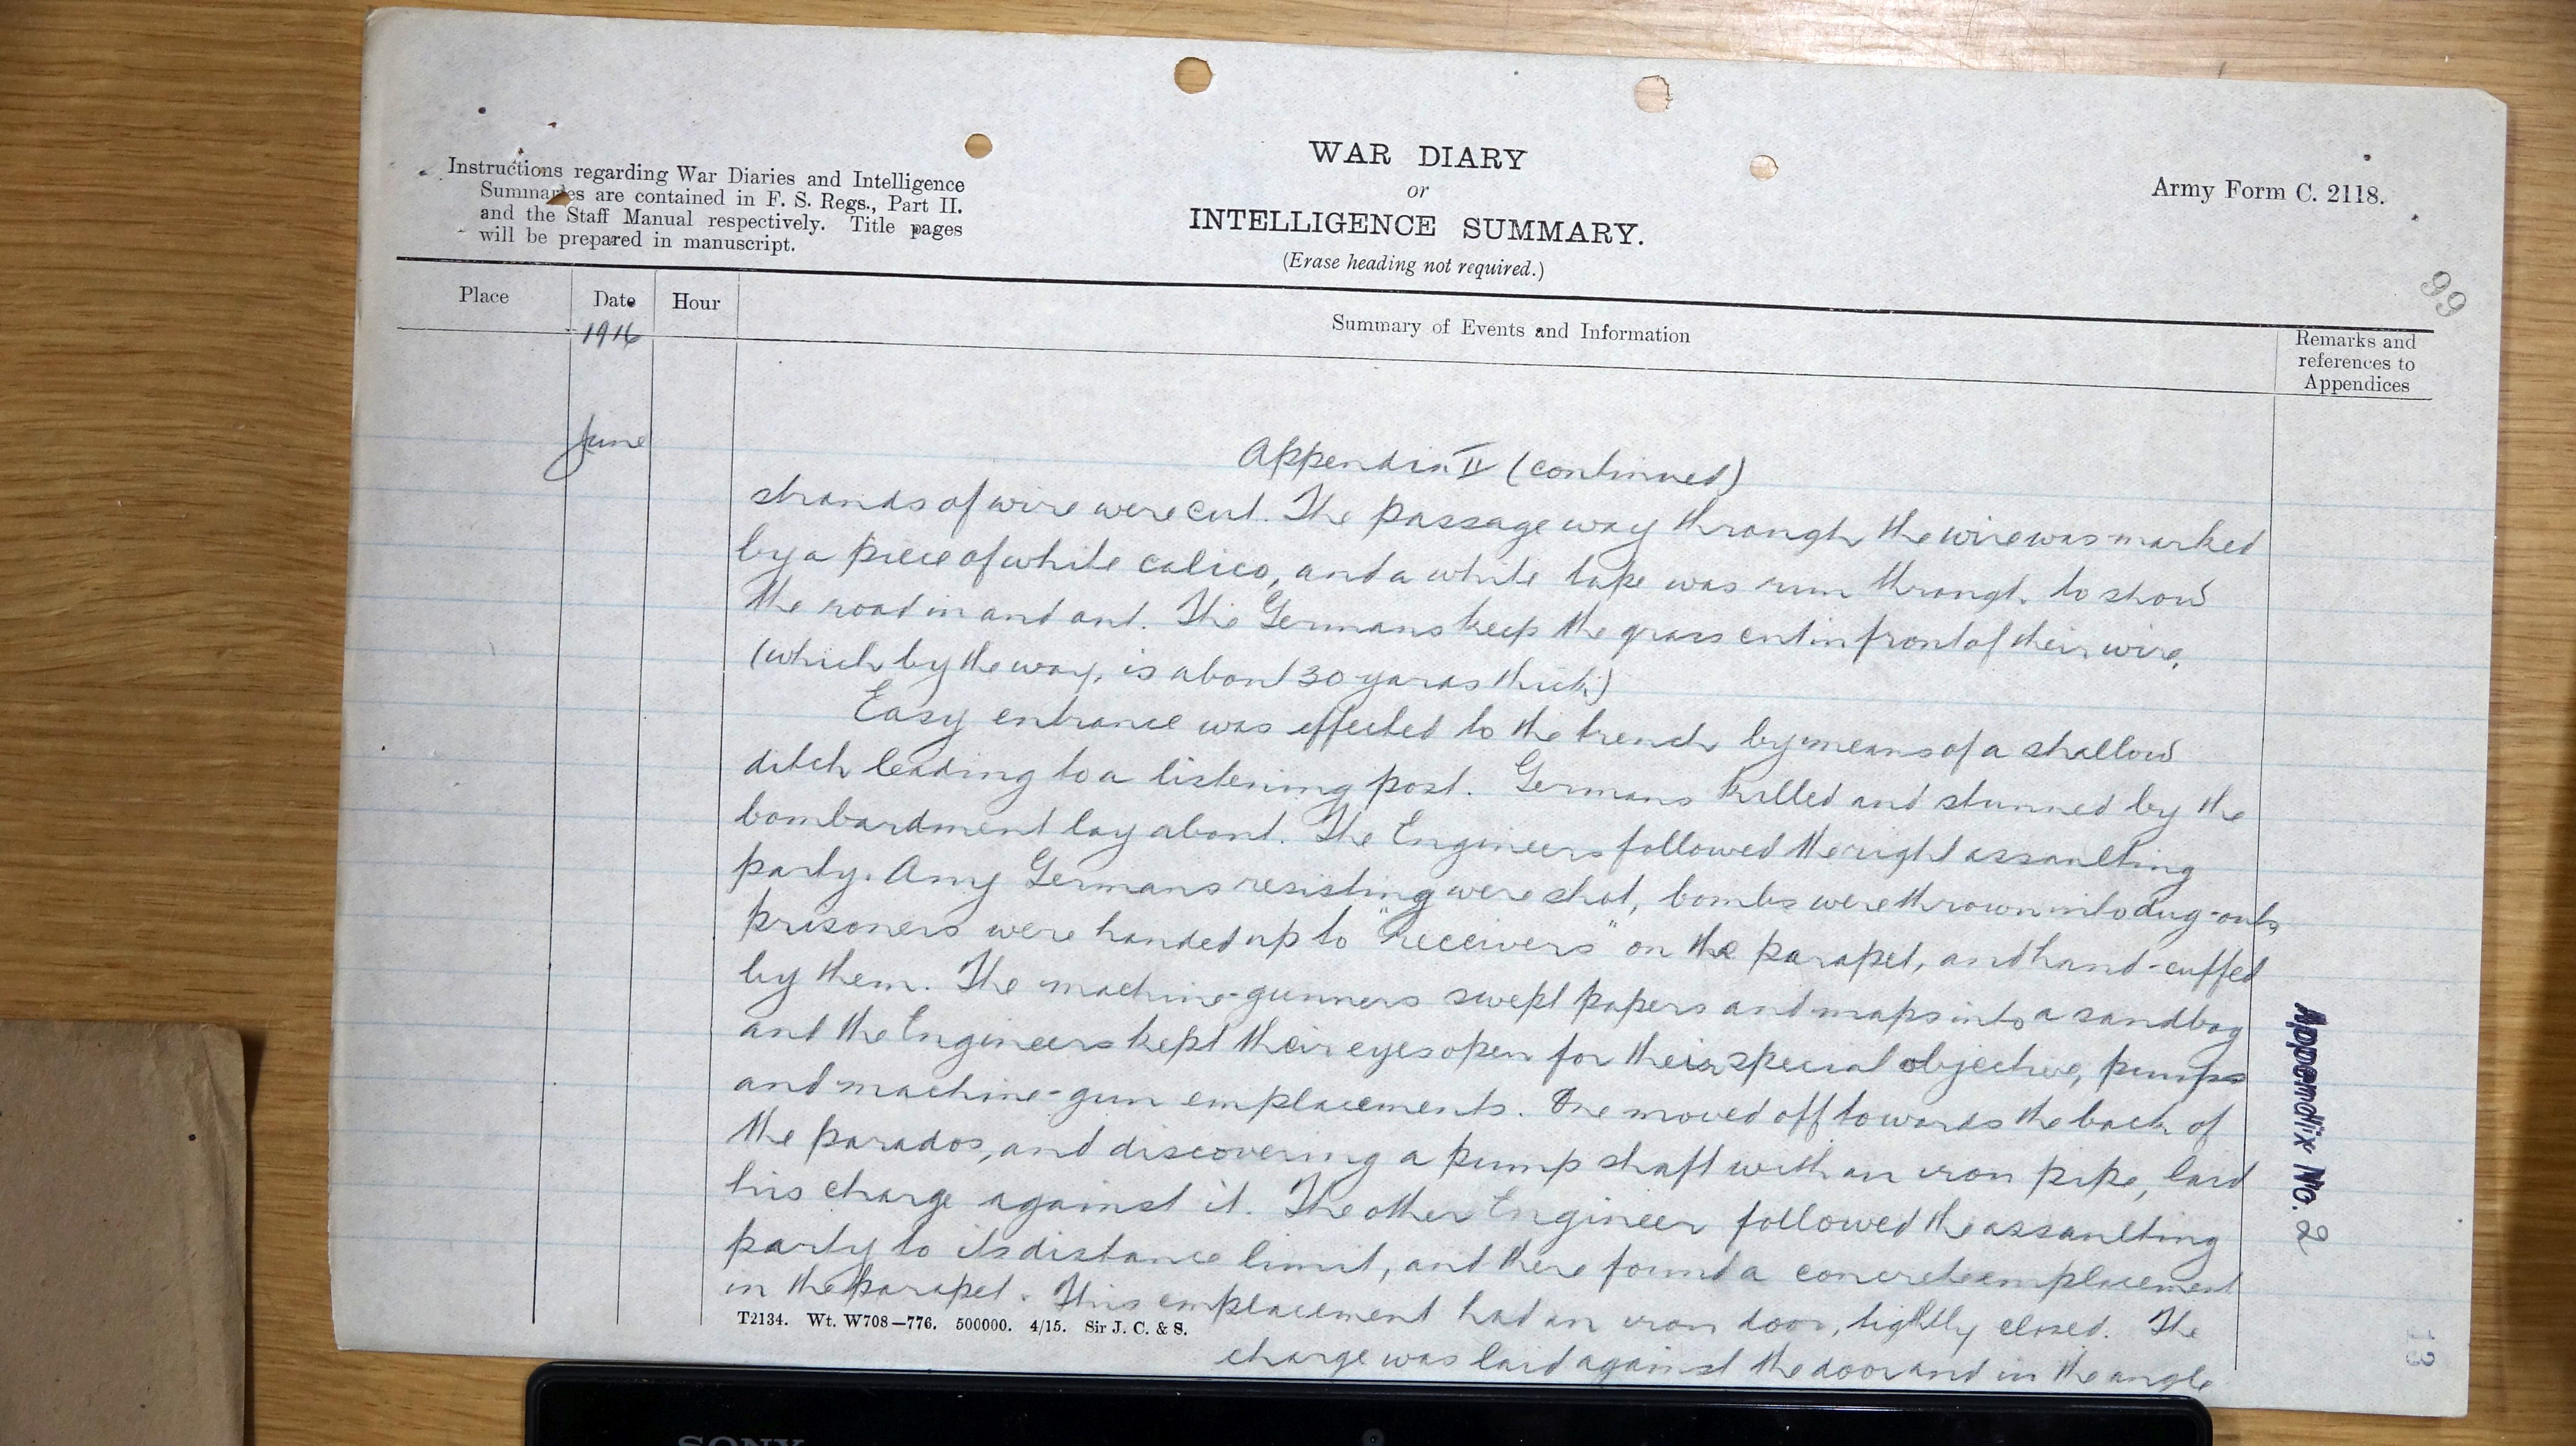 Instructions regarding War Diaries and Intelligence
Summaries are contained in F. S. Regs., Part II.
and the Staff Manual respectively. Title pages
will be prepared in manuscript.
WAR DIARY
or
INTELLIGENCE SUMMARY.
(Erase heading not required.)
Army Form C. 2118.
99
Place
Date
Hour
Summary of Events and Information
Remarks and
references to
Appendices
1916
June
Appendix II (continued)
strands of wire were cut. The passage way through the wire was marked
by a piece of white calico, and a white tape was run through to show
the road in and out. The Germans keep the grass cut in front of their wire,
(which by the way, is about 30 yards thick)
Easy entrance was effected to the trench by means of a shallow
ditch leading to a listening post. Germans killed and stunned by the
bombardment lay about. The Engineers followed the right assaulting
party. Any Germans resisting were shot, bombs were thrown into dug-outs,
prisoners were handed up to "receivers" on the parapet, and hand-cuffed
by them. The machine-gunners swept papers and maps into a sandbag
and the Engineers kept their eyes open for their special objective, pumps
and machine-gun emplacements. One moved off towards the back of
the parados, and discovering a pump shaft with an iron pipe, laid
his charge against it. The other Engineer followed the assaulting
party to its distance limit, and there found a concrete emplacement
in the parapet. This emplacement had an iron door, tightly closed. The
charge was laid against the door and in the angle
T2134. Wt. W708—776. 500000. 4/15. Sir J. C. & S.
Appendix No. 2
13
SONY